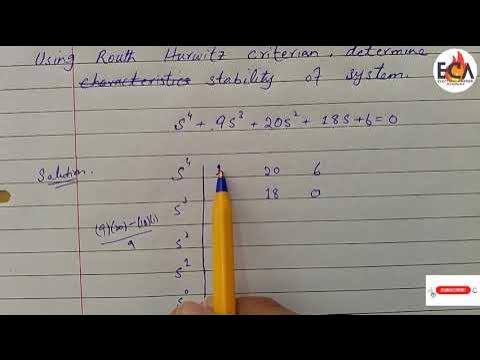 Using Routh Hurwitz criterian, determine
characteristics stability of system.
ECA
s⁴ + 9s³ + 20s² + 18s + 6 = 0
Solution.
s⁴ 1 20 6
s³ 18 0
(9)(20) - (18)(1) / 9
s²
s¹
s⁰